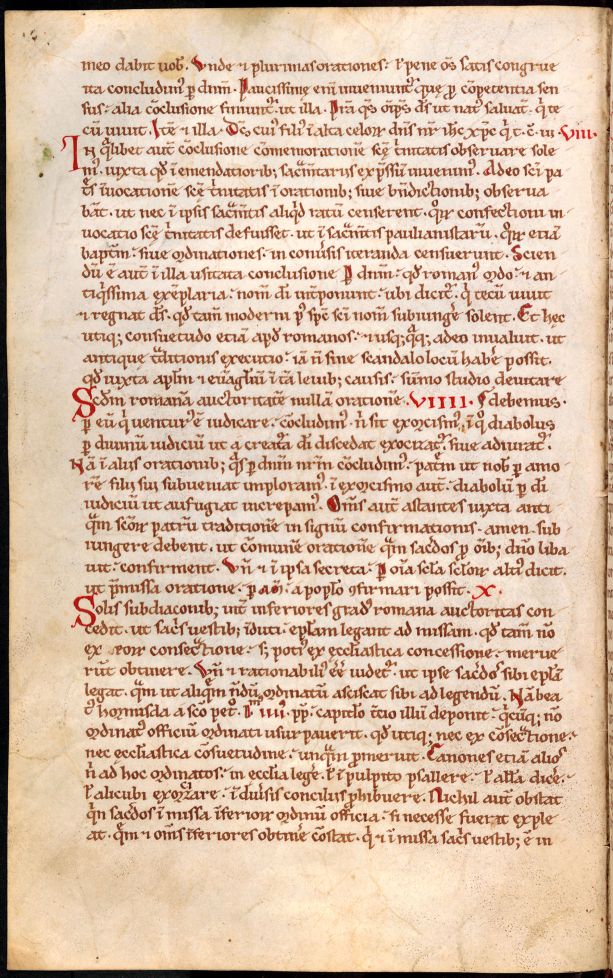 meo dabit uob. Unde ⁊ plurimas orationes. ł pene om̄s satis congrue
nt̄a concludim᷒ p dn̄m. Paucissime eni᷒ inueniunt᷒ quę p cōpetentia sen
sus. alia cōclusione finiunt᷒. ut illa. Prā qs̄ om̄ps ds̄ ut nat᷒ saluat᷒. q̇ te
cū uiuit. Itē ⁊ illa. Dc̄ cui᷒ fili᷒ ī alta celoꝝ dn̄s nr̄ ih̄c xp̄c q̇ t. ē. in VIII.
In q̇libet aut᷒ cōclusione cōmemorationē scę̄ tͥnitatis obseruare sole
m᷒. iuxta qd̄ ī emendatiorib; sacͣmtariis exp̄ssū inuenim᷒. Adeo sc̄i pa
tͤs īuocationē scę̄ tͥnitatis ī orationib; siue bn̄dictionib; obserua
bāt. ut nec ī ipsis sacͣmtis aliqͥd ratū censerent. qͦꝝ confectioni in
uocatio scę̄ tͥnitatis defuisset. ut ī sacͣmtis paulianistarū. qͦꝝ etiā
baptm̄. siue ordinationes. in conūsis iteranda censuerunt. Scien
dū ē aut᷒ ī illa usitata conclusione P dn̄m. qd̄ roman᷒ ordo. ⁊ an
tiqͥssima exēplaria. nom̄ di᷒ int̄ponunt. ubi dicit᷒. q̇ tecū uiuit
⁊ regnat ds̄. qd̄ tam̄ moderni p᷒ spē sc̄i nom̄ subiungˀe solent. Et hec
utiq; consuetudo etiā apd̄ romanos. ⁊ usq;q̇q; adeo inualuit. ut
antique tͣditionis executio. iā n̄ sine scandalo locū habˀe possit.
qd̄ iuxta apl̄m ⁊ euāgl̄iū ī tā leuib; causis. sūmo studio deuitare
Scdm̄ romanā auctoritatē nullā orationē. VIIII. debemus.
p eū q̇ uentur᷒ ē iudicare. cōcludim᷒. n̄ sit exorcism᷒. ī qͦ diabolus
p diuinū iudiciū ut a creatͣra di᷒ discedat exorcizat᷒. siue adiurat᷒.
Nā ī aliis orationib; qͣs p dn̄m nrm̄ cōcludim᷒. patrē ut nob᷒ p amo
rē filii sui subueniat imploram᷒. ī exorcismo aut᷒. diabolū p di᷒
iudiciū ut aufugiat increpam᷒. Om̄s aut᷒ astantes iuxta anti
quā scōꝝ patrū traditionē in signū confirmationis. amen. sub
iungere debent. ut cōmunē orationē quā sacdos p oīb; dn̄o liba
uit. confirment. Un̄ ⁊ ī ipsa secreta. P oīa scl̄a scl̄oꝝ alti᷒ dicit.
ut p̄missa oratione. p am̄. a pop̄lo ꝯfirmari possit. X.
Solis subdiaconib; int̄ inferiores gradˀ romana auctoritas con
cedit. ut sacͥs uestib; īduti epl̄am legant ad missam. qd̄ tam̄ nō
ex eoꝝ consecͣtione. s; poti᷒ ex ecclīastica concessione. merue
rūt obtinere. Un̄ ⁊ rationabili᷒ ēē uidet᷒. ut ipse sacdoˢ sibi epl̄ā
legat. quā ut aliquē n̄dū ordinatū asciscat sibi ad legendū. Nā bea
t᷒ hormisda a scō petͦ. l. IIII. pp̄. capitlo t̄cio illū deponit. q̇cūq; nō
ordinat᷒ officiū ordinati usurpauerit. qd̄ utiq; nec ex cōsectione.
nec ecclīastica cōsuetudine. unquā p̄meruit. Canones etiā alioˢ
n̄ ad hoc ordinatos. in ecclīa legˀe. ł ī pulpito psallere. ł all̄a dicˀe.
ł alicubi exorcizare. ī diuˀsis conciliis phibuere. Nichil aut᷒ obstat
quin sacdos ī missa īferioꝝ ordinū officia. si necesse fuerat exple
at. quā ⁊ om̄s īferiores obtinuˀe cōstat. q̇ ⁊ ī missa sacͥs uestib; ē in